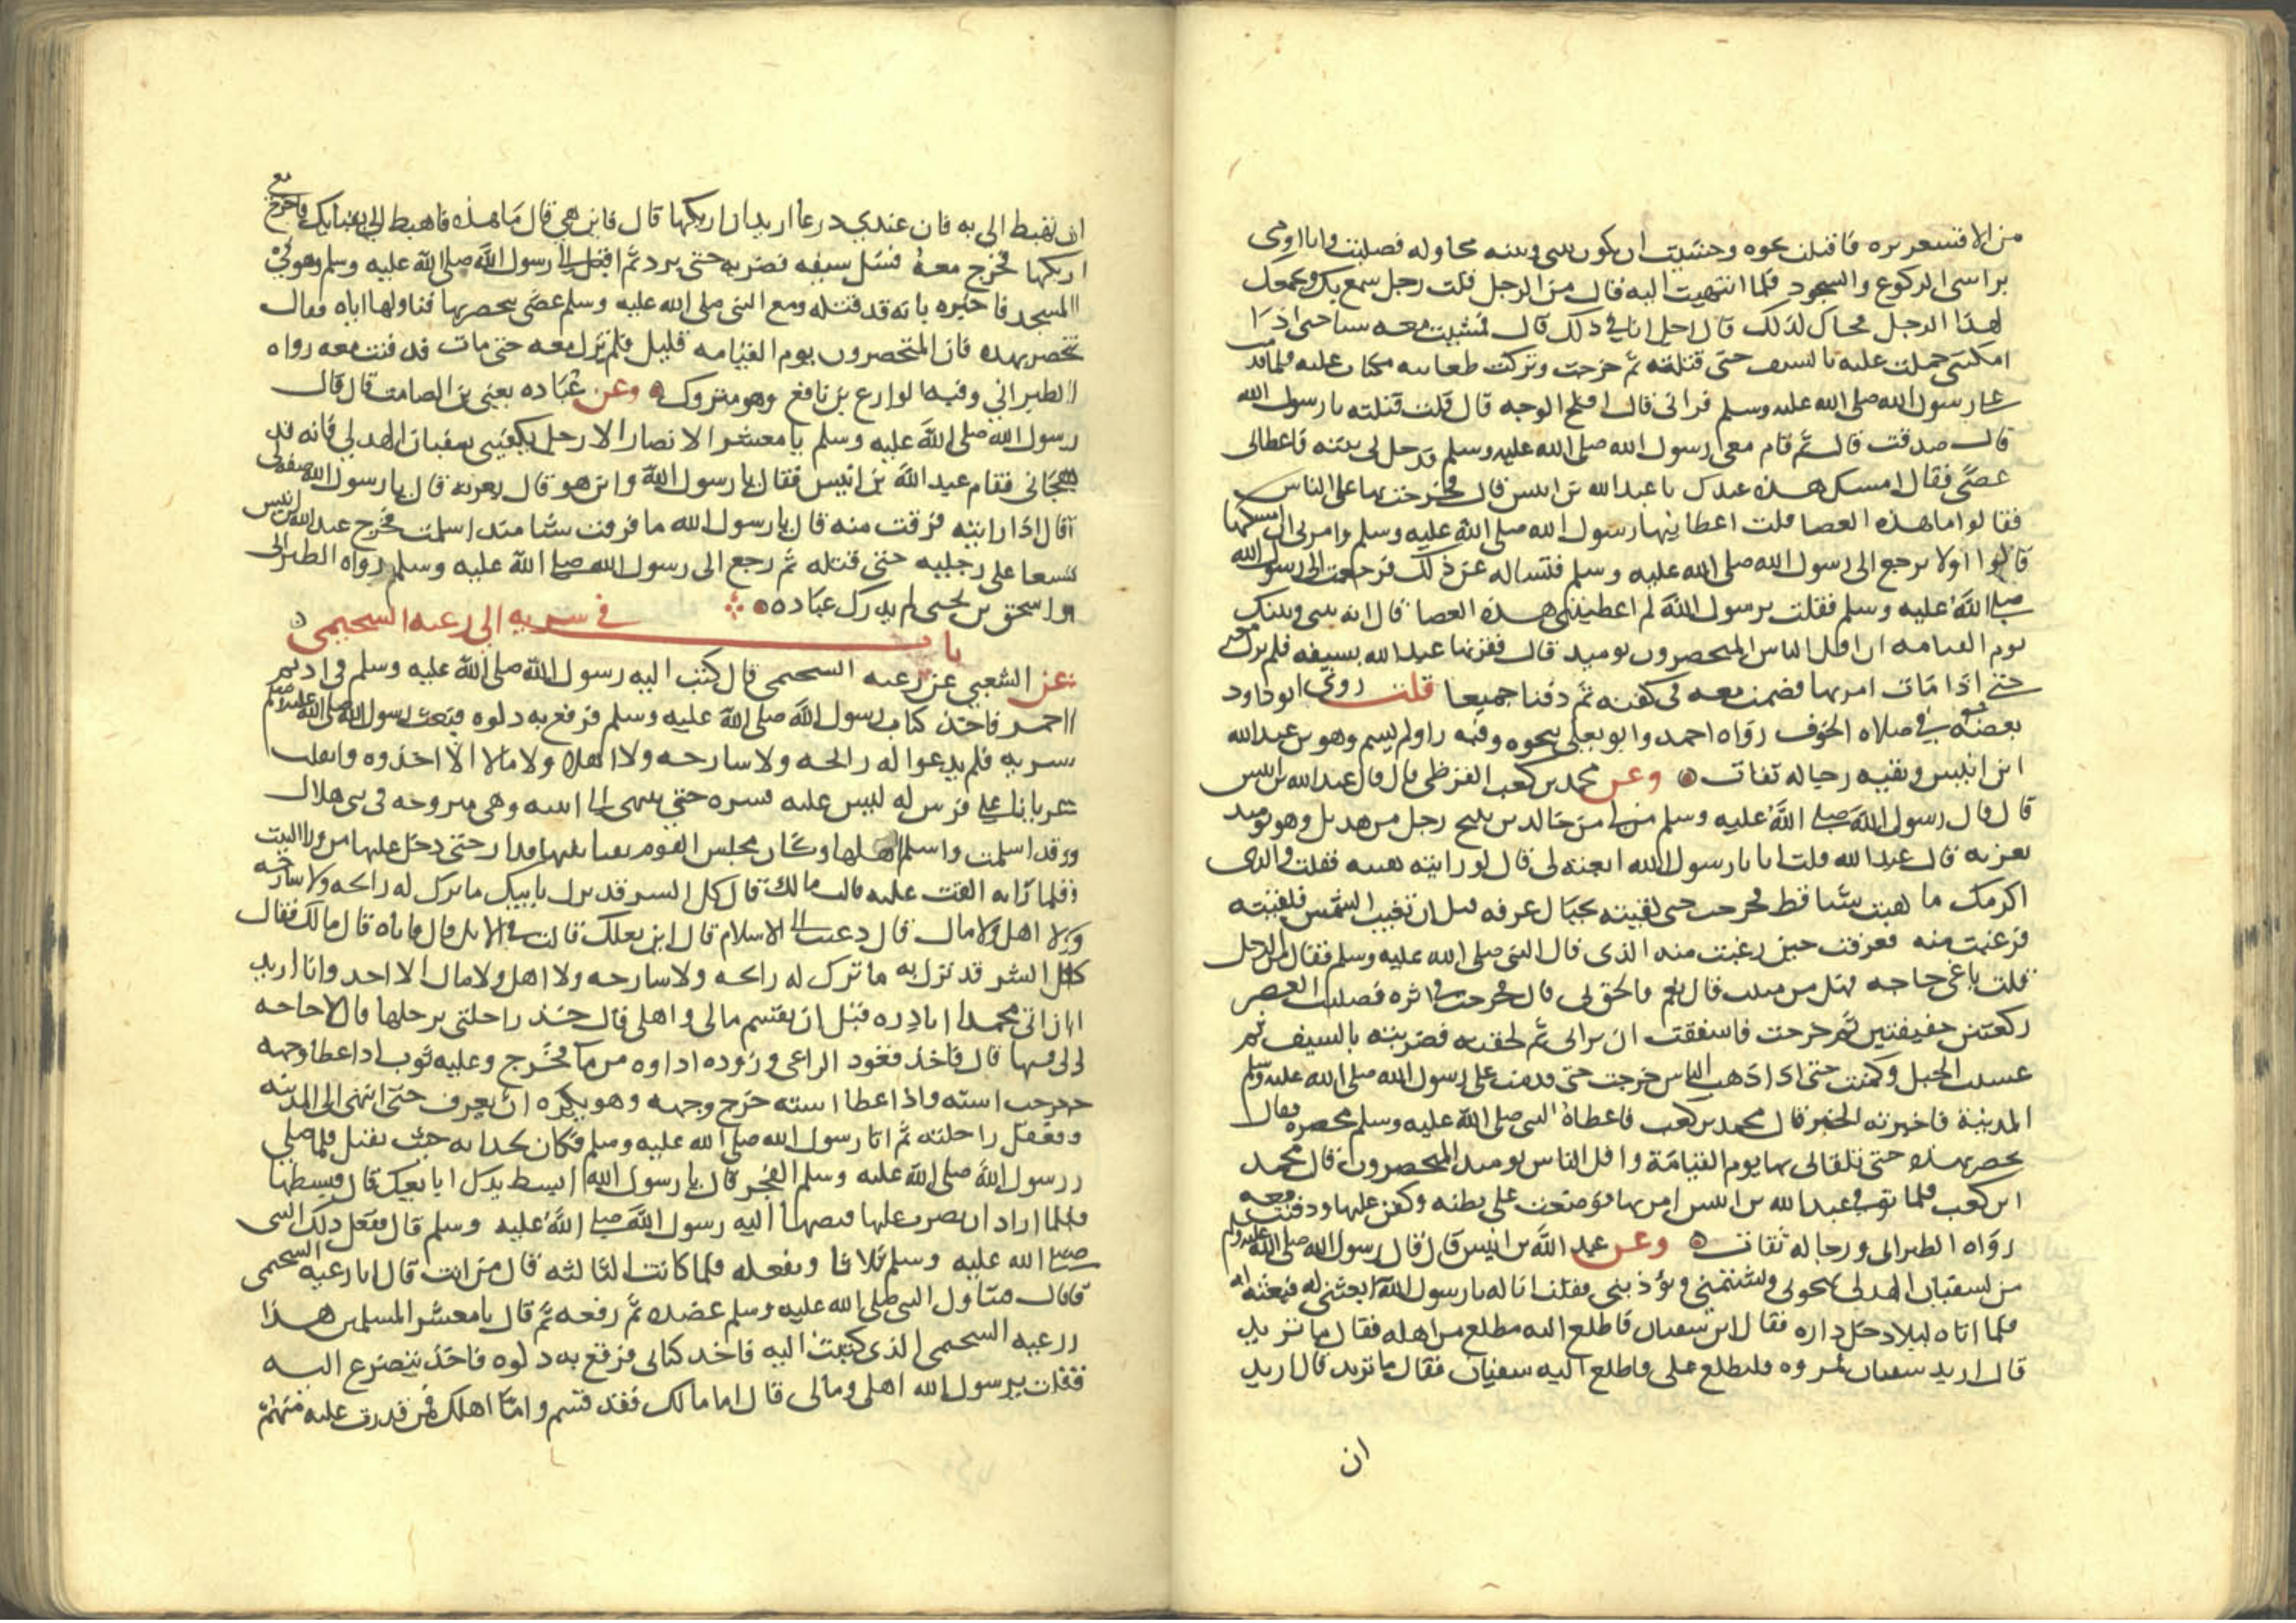 من الاقشعريره فاقبلت نحوه وخشيت ان يكون بيني وبينه محاوله فصليت وانا اومى
براسى الركوع والسجود فلما انتهيت اليه قال من الرجل قلت رجل سمع بك وبجمعك
لهذا الرجل فجاك لذلك قال اجل انا في ذلك قال فمشيت معه شيا حتى اذا
امكنني حملت عليه بالسيف حتى قتلته ثم خرجت وتركت ظعاينه مكبات عليه فلما قدمت
على رسول الله صلى الله عليه وسلم فراني قال افلح الوجه قال قلت قتلته يا رسول الله
قال صدقت قال ثم قام معى رسول الله صلى الله عليه وسلم فدخل بى بيته فاعطانى
عصًى فقال امسك هذه عندك يا عبد الله بن انيس قال فخرجت بها على الناس
فقالوا ما هذه العصا قلت اعطانيها رسول الله صلى الله عليه وسلم وامرنى ان امسكها
قالوا اولا ترجع الى رسول الله صلى الله عليه وسلم فتساله عن ذلك فرجعت الى رسول الله
صلى الله عليه وسلم فقلت يرسول الله لم اعطيتنى هذه العصا قال ايه بينى وبينك
يوم القيامه ان اقل الناس المتخصرون يوميد قال فقرنها عبد الله بسيفه فلم تزل معه
حتى اذا مات امر بها فضمت معه فى كفنه ثم دفنا جميعا قلت روى ابو داود
بعضه في صلاه الخوف رواه احمد وابو يعلى بنحوه وفيه راو لم يسم وهو بن عبد الله
ابن انيس وبقيه رجاله ثقات وعن محمد بن كعب القرظى قال قال عبد الله بن انيس
قال قال رسول الله صلى الله عليه وسلم من لى من خالد بن نبيح رجل من هذيل وهو يوميد
بعرنه قال عبد الله قلت انا يا رسول الله انعته لى قال لو رايته هبته فقلت والذى
اكرمك ما هبت شيا قط فخرجت حتى لقيته بجبال عرفه قبل ان تغيب الشمس فلقيته
فرعبت منه فعرفت حين رعبت منه الذى قال النبى صلى الله عليه وسلم فقال من الرجل
فقلت باغى حاجه هل من مبيت قال نعم فالحق بى قال فخرجت فى اثره فصليت العصر
ركعتين خفيفتين ثم خرجت فاشفقت ان يرانى ثم لحقته فضربته بالسيف ثم
غشيت الجبل وكمنت حتى اذا ذهب الناس خرجت حتى قدمت على رسول الله صلى الله عليه وسلم
المدينة فاخبرته الخبر قال محمد بن كعب فاعطاه النبى صلى الله عليه وسلم مخصره فقال
تخصر بهذه حتى تلقانى بها يوم القيامة واقل الناس يوميد المتخصرون قال محمد
ابن كعب فلما توفى عبد الله بن انيس امر بها فوضعت على بطنه وكفن عليها ودفنت معه
رواه الطبرانى ورجاله ثقات وعن عبد الله بن انيس قال قال رسول الله صلى الله عليه وسلم
من لسفيان الهذلى يهجونى ويشتمنى ويؤذينى فقلت انا له يا رسول الله ابعثنى له فبعثه له
فلما اتاه ليلا دخل داره فقال اين سفيان فاطلع اليه مطلع من اهله فقال ما تريد
قال اريد سفيان فمروه فليطلع على فاطلع اليه سفيان فقال ما تريد قال اريد
ان
ان تهبط الى به فان عندي درعا اريد ان اريكها قال فاين هي قال ما هذه فاهبط الى فخرج مع
اريكها فخرج معه فسل سيفه فضربه حتى برد ثم اقبل الى رسول الله صلى الله عليه وسلم وهو في
المسجد فاخبره بانه قد قتله ومع النبى صلى الله عليه وسلم عصًى يتخصر بها فناولها اياه فقال
تخصر بهذه فان المتخصرون يوم القيامه قليل فلم تزل معه حتى مات فدفنت معه رواه
الطبراني وفيه الوازع بن نافع وهو متروك وعن عباده يعنى بن الصامت قال قال
رسول الله صلى الله عليه وسلم يا معشر الانصار الا رجل يكفينى سفيان الهدلى فانه قد
هجانى فقام عبد الله بن انيس فقال يا رسول الله واين هو قال بعرنه قال يا رسول الله صفه لى
قال اذا رايته فرقت منه قال يا رسول الله ما فرقت شيا منذ اسلمت فخرج عبد الله بن انيس
يسعا على رجليه حتى قتله ثم رجع الى رسول الله صلى الله عليه وسلم رواه الطبرانى
واسحق بن يحيى لم يدرك عباده
باب في سريه الى رعيه السحيمى
عن الشعبي عن رعيه السحيمى قال كتب اليه رسول الله صلى الله عليه وسلم فى اديم
احمر فاخذ كتاب رسول الله صلى الله عليه وسلم فرقع به دلوه فبعث رسول الله صلى الله عليه وسلم
سريه فلم يدعوا له رائحه ولا سارحه ولا اهلا ولا مالا الا اخذوه وانفلت
عريانا على فرس له ليس عليه قشره حتى ينتهى الى ابنته وهى متزوجه فى بنى هلال
وقد اسلمت واسلم اهلها وكان مجلس القوم بفنا بيتها فدار حتى دخل عليها من ورا البيت
فلما راته القت عليه قالت مالك قال كل الشر قد نزل بابيك ما ترك له رائحه ولا سارحه
ولا اهل ولا مال قال دعيت الى الاسلام قال اين بعلك قالت فى الابل قال فاتاه قال مالك فقال
كل الشر قد نزل به ما ترك له رائحه ولا سارحه ولا اهل ولا مال الا اخذ وانا اريد
ان اتى محمدا ابادره قبل ان يقتسم مالى واهلى قال خذ راحلتى برحلها قال لا حاجه
لى فيها قال فاخذ قعود الراعى وزوده اداوه من ما فخرج وعليه ثوب اذا غطا وجهه
خرجت استه واذا غطا استه خرج وجهه وهو يكره ان يعرف حتى انتهى الى المدينه
فعقل راحلته ثم اتا رسول الله صلى الله عليه وسلم فكان بحذائه حيث يقبل فلما صلى
رسول الله صلى الله عليه وسلم الفجر قال يا رسول الله ابسط يدك ابايعك قال فبسطها
فلما اراد ان يضرب عليها قبضها اليه رسول الله صلى الله عليه وسلم قال ففعل ذلك النبى
صلى الله عليه وسلم ثلاثا ويفعله فلما كانت الثالثه قال من انت قال انا رعيه السحيمى
قال فتناول النبى صلى الله عليه وسلم عضده ثم رفعه ثم قال يا معشر المسلمين هذا
رعيه السحيمى الذى كتبت اليه فاخذ كتابى فرقع به دلوه فاخذ يتضرع اليه
فقلت يرسول الله اهلى ومالى قال اما مالك فقد قسم واما اهلك فمن قدرت عليه منهم